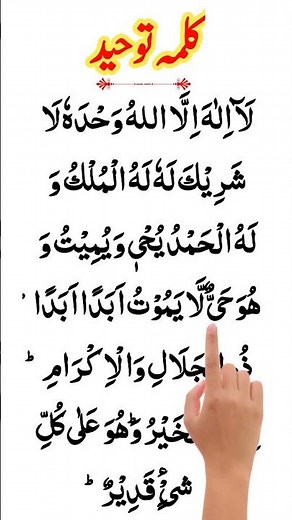 کلمہ توحید
لَآ اِلٰهَ اِلَّا اللهُ وَحْدَهٗ لَا
شَرِيْكَ لَهٗ لَهُ الْمُلْكُ وَ
لَهُ الْحَمْدُ يُحْيٖ وَيُمِيْتُ وَ
هُوَ حَيٌّ لَّا يَمُوْتُ اَبَدًا اَبَدًا ؕ
وَالْاِكْرَامِ ؕ
وَهُوَ عَلٰى كُلِّ
شَیْءٍ قَدِيْرٌ ؕ